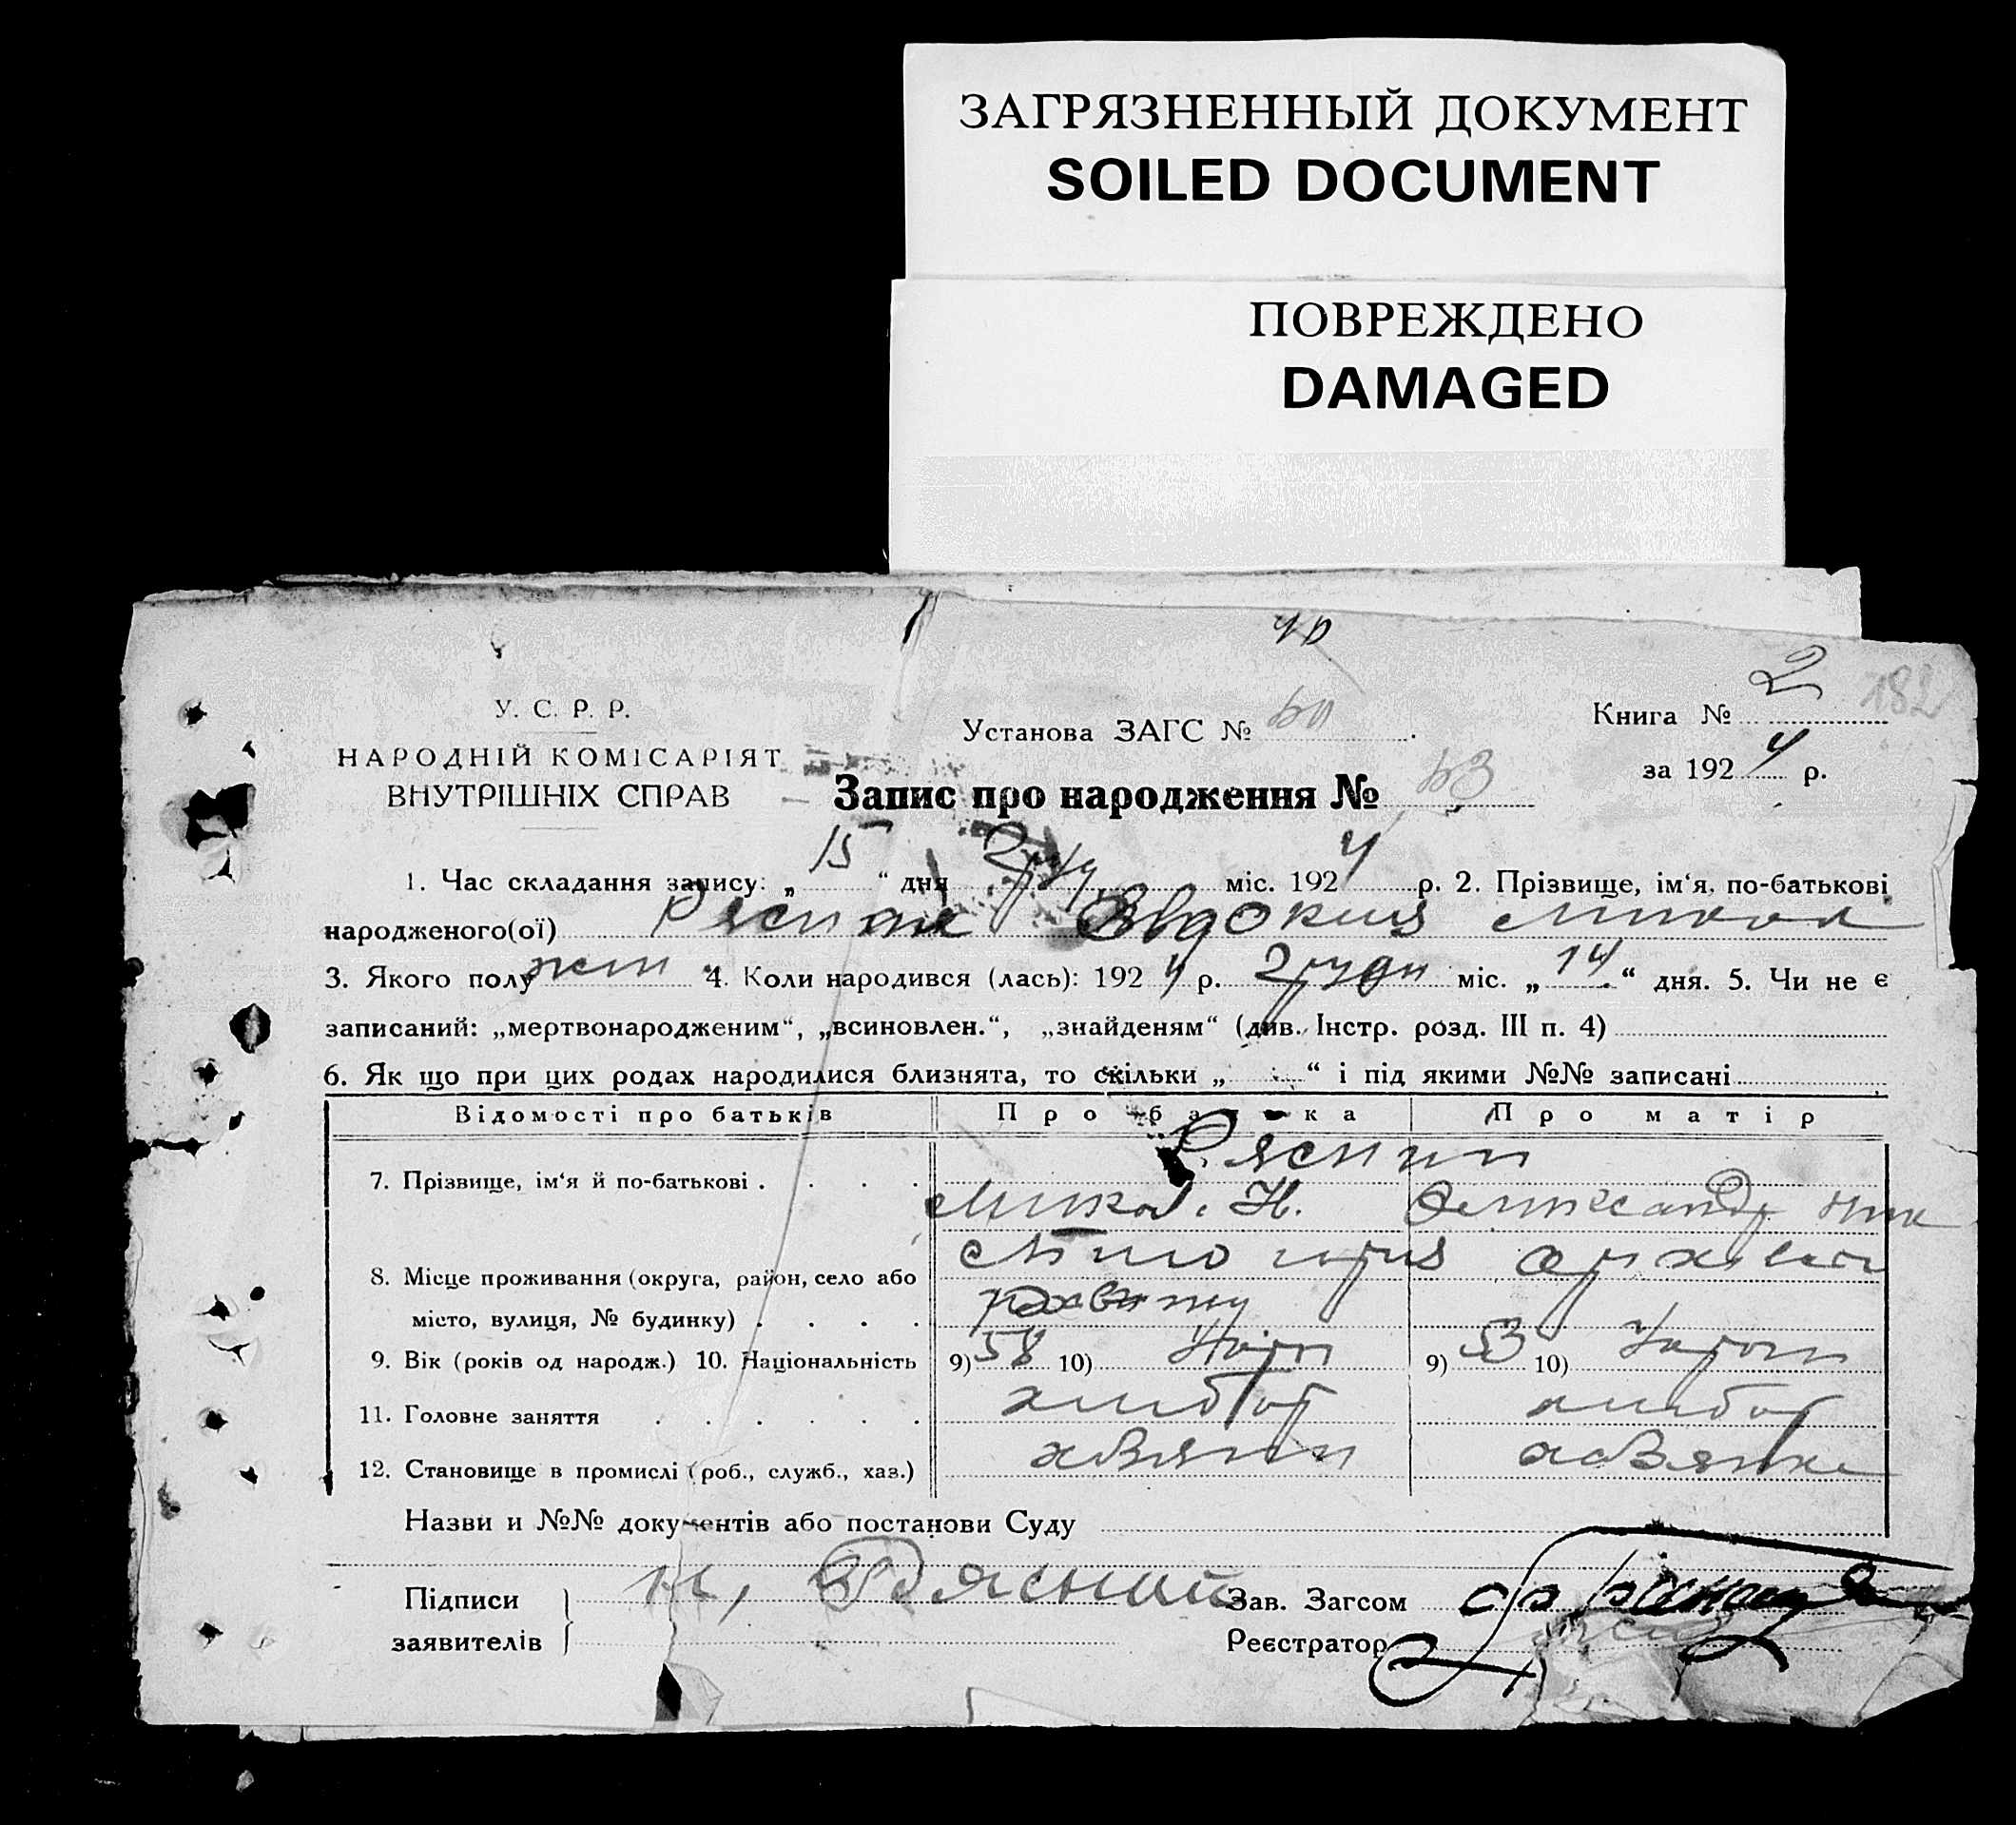 ЗАГРЯЗНЕННЫЙ ДОКУМЕНТ
SOILED DOCUMENT
ПОВРЕЖДЕНО
DAMAGED
У. С. Р. Р.
НАРОДНІЙ КОМІСАРІЯТ
ВНУТРІШНІХ СПРАВ
Установа ЗАГС №
Книга № 2 182
за 1924 р.
Запис про народження №
1. Час складання запису: „ 15 “ дня груд міс. 1924 р. 2. Прізвище, ім‘я, по-батькові
народженого(ої) Рясная Овдокия Микол
3. Якого полу жен. 4. Коли народився (лась): 1924 р. грудн міс. „ 14 “ дня. 5. Чи не є
записаний: „мертвонародженим“, „всиновлен.“, „знайденям“ (див. Інстр. розд. III п. 4)
6. Як що при цих родах народилися близнята, то скільки „ “ і під якими №№ записані
Відомості про батьків Про батька Про матір
Рясний
7. Прізвище, ім‘я й по-батькові
Микол. Н. Олександр
8. Місце проживання (округа, район, село або
місто, вулиця, № будинку)
9. Вік (років од народж.) 10. Національність 9) 58 10) Укр 9) 53 10)
11. Головне заняття хлибор хлибор
12. Становище в промислі (роб., служб., хаз.) хазяин хазяйка
Назви и №№ документів або постанови Суду
Підписи Н, Рясний Зав. Загсом
заявителів Реєстратор